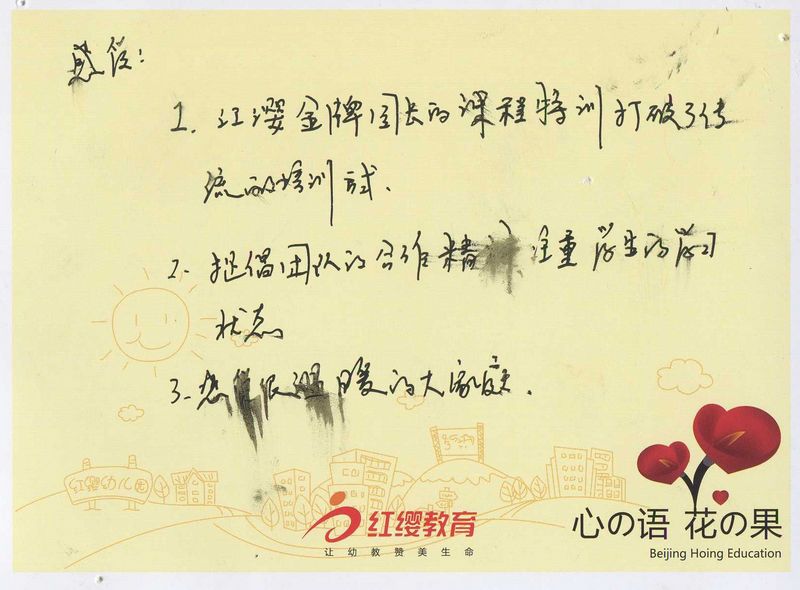 感段:
1. 江婴金牌园长的课程特训打破了传
统的培训式.
2. 提倡团队的合作精 注重学生的学习
状态
3. 很温暖的大家庭.
红缨幼儿园
红缨教育
让幼教赞美生命
心の语 花の果
Beijing Hoing Education